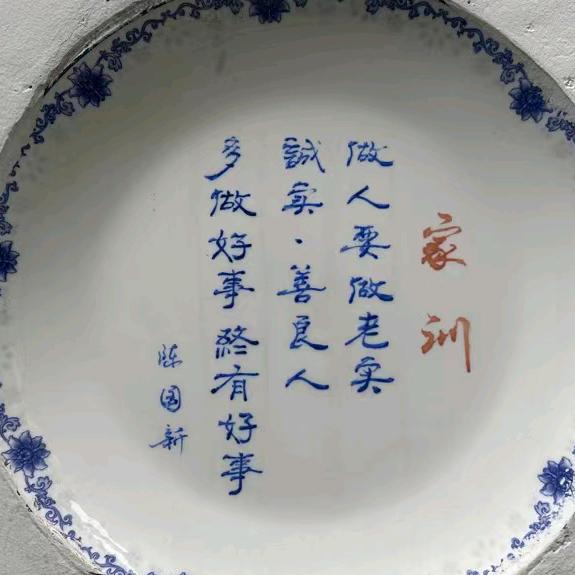 家训
做人要做老实
誠实·善良人
多做好事終有好事
陈国新